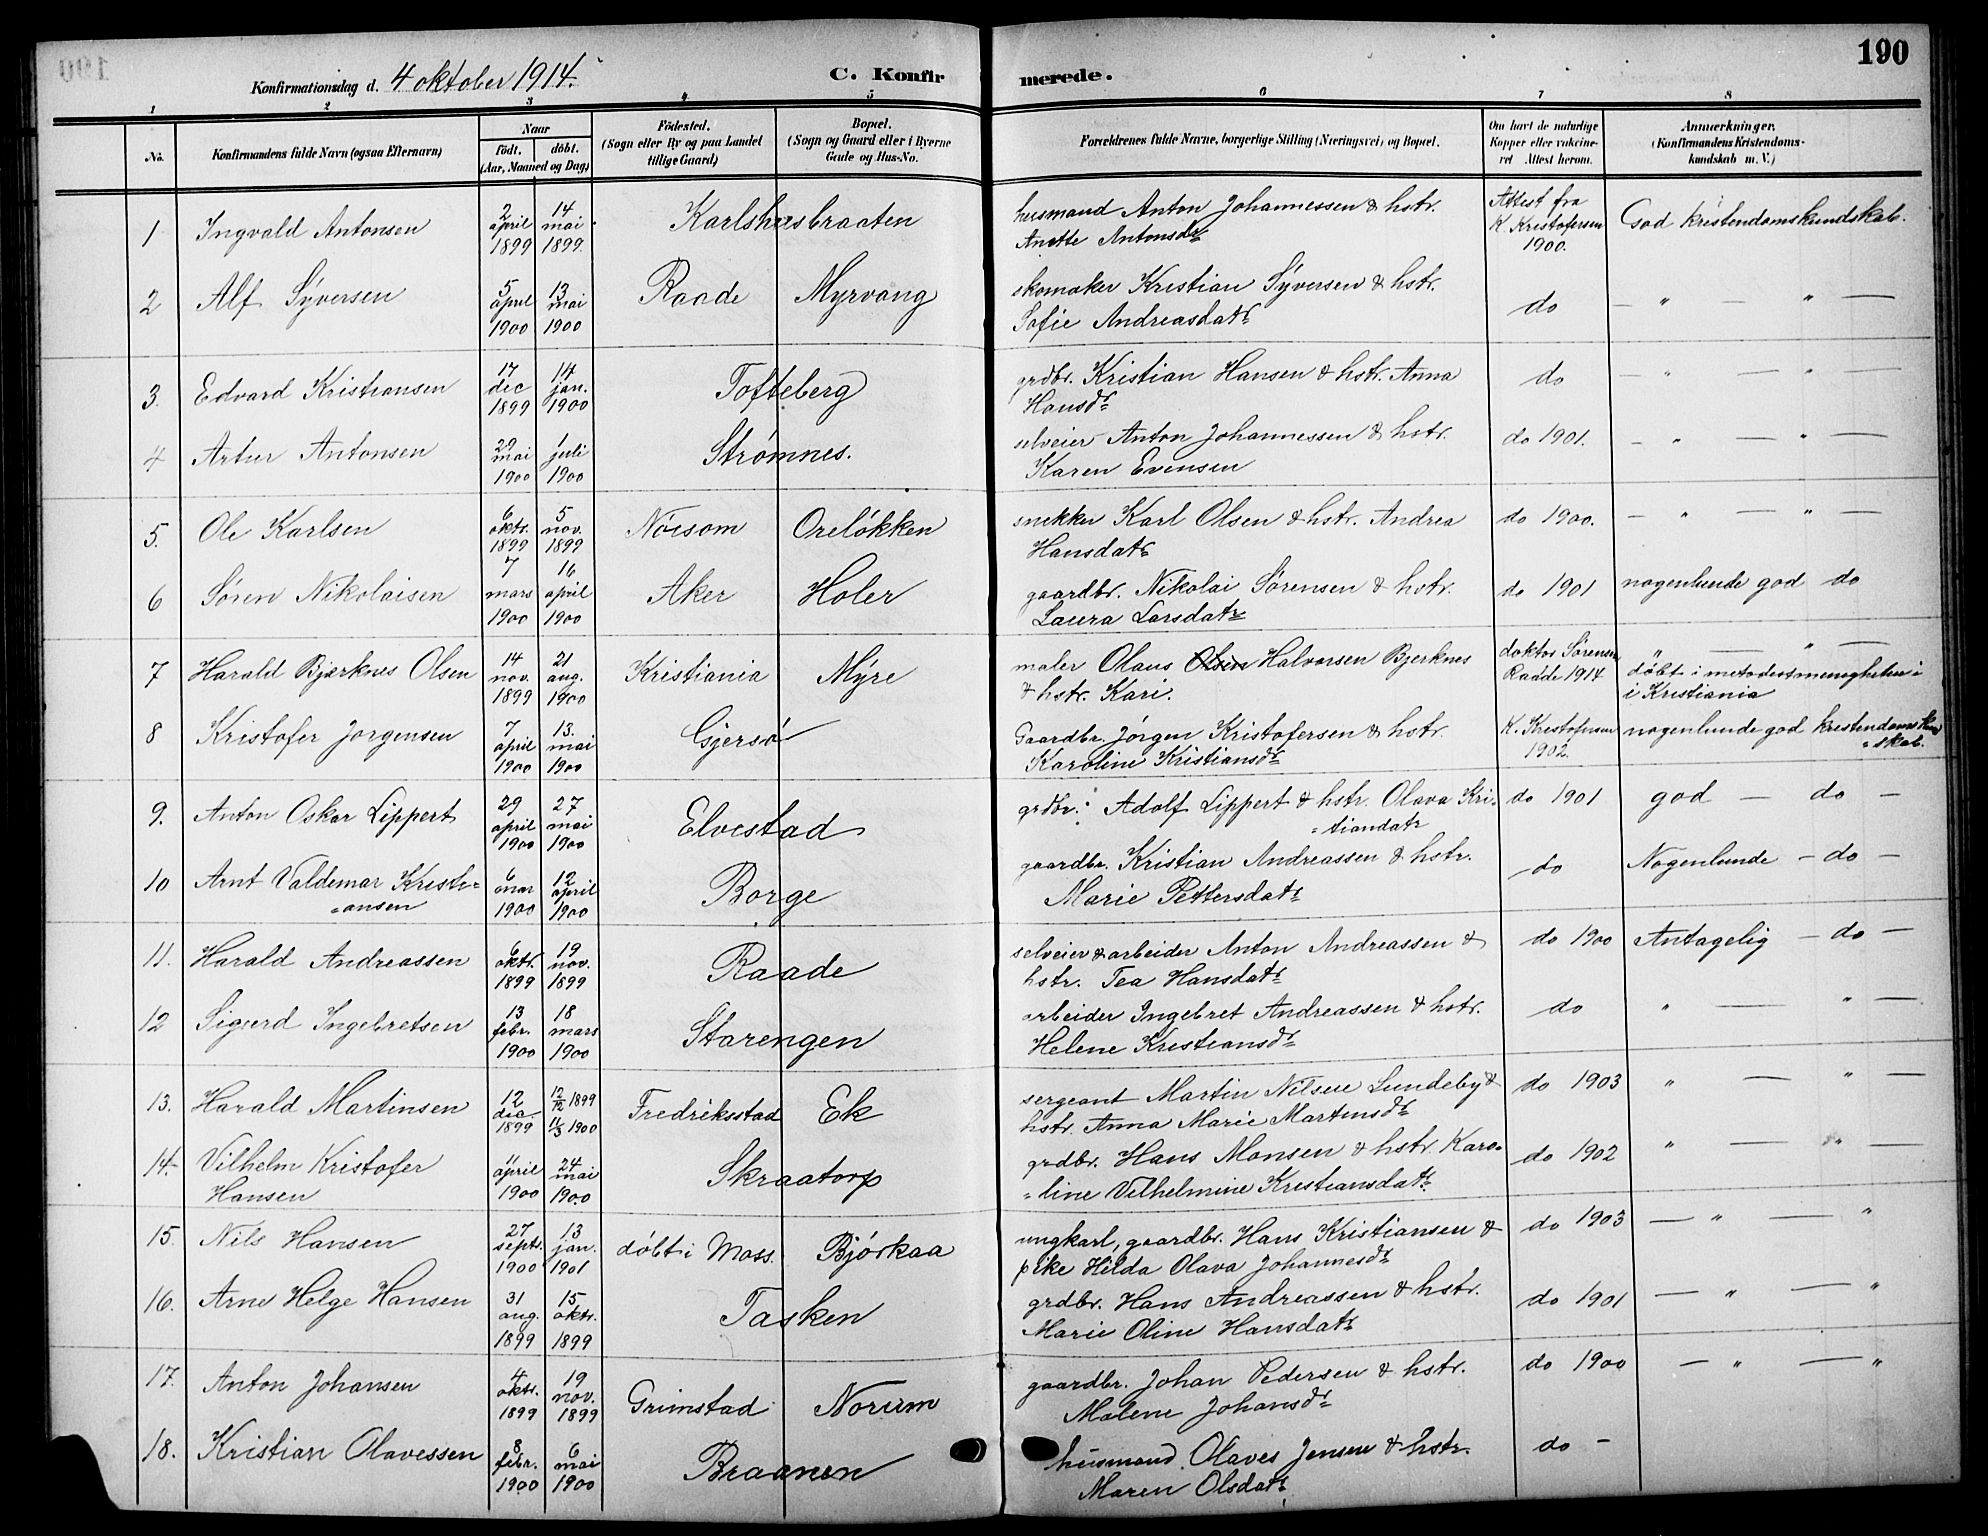 190
Konfirmationsdag d. 4 oktober 1914.
C. Konfirmerede.
1 2 3 4 5 6 7 8
No.
Konfirmandens fulde Navn (ogsaa Efternavn)
Naar
født. døbt.
(Aar, Maaned og Dag)
Fødested.
(Sogn eller By og paa Landet
tillige Gaard)
Bopæl.
(Sogn og Gaard eller i Byerne
Gade og Hus-No.
Forældrenes fulde Navne, borgerlige Stilling (Næringsvei) og Bopæl.
Om havt de naturlige
Kopper eller vakcine-
ret Attest herom.
Anmærkninger.
(Konfirmandens Kristendoms-
kundskab m. V.)
1 Ingvald Antonsen 2 april 1899 14 mai 1899. Karlshusbraaten husmand Anton Johannessen & hstr.
Anette Antonsdtr
Attest fra
K. Kristofersen
1900.
God kristendomskundskab.
2 Alf Syversen 5 april 1900 13 mai 1900 Raade Myrvang skomaker Kristian Syversen & hstr.
Sofie Andreasdatr
do — " — " —
3. Edvard Kristiansen 17 dec 1899 14 jan. 1900 Tofteberg grdbr. Kristian Hansen & hstr. Anna
Hansdr
do — " — " —
4 Artur Antonsen 29 mai 1900 1 juli 1900 Strømnes. selveier Anton Johannessen & hstr.
Karen Evensen
do 1901. — " — " —
5. Ole Karlsen 6 oktr. 1899 5 nov. 1899 Nøisom Oreløkken snekker Karl Olsen & hstr. Andrea
Hansdatr
do 1900. — " — " —
6 Søren Nikolaisen 7 mars 1900 16 april 1900 Aker Holer gaardbr. Nikolai Sørensen & hstr.
Laura Larsdatr
do 1901 nogenlunde god do
7 Harald Bjerknes Olsen 14 nov. 1899 21 aug. 1900 Kristiania Myre maler Olaus Olsen Halvorsen Bjerknes
& hstr. Kari.
doktor Sørensen
Raade 1914
" — " —
døbt i metodestmenigheten i
i Kristiania
8 Kristofer Jørgensen 7 april 1900 13. mai 1900 Gjersø Gaardbr. Jørgen Kristofersen & hstr.
Karoline Kristiansdr
K. Kristofersen
1902.
nogenlunde god kristendomskund
"skab.
9. Anton Oskar Lippert 29 april 1900 27 mai 1900 Elvestad grdbr. Adolf Lippert & hstr. Olava Kri-
"tiandatr
do 1901 god — do —
10 Arnt Valdemar Kristi=
"ansen
6 mar 1900 12 april 1900 Borge gaardbr. Kristian Andreassen & hstr.
Marie Pettersdatr
do Nogenlunde — do —
11. Harald Andreassen 6 oktr. 1899 19 nov. 1899 Raade selveier & arbeider Anton Andreassen &
hstr. Tea Hansdatr
do 1900 Antagelig — do —
12 Sigurd Ingebretsen 13 febr. 1900 18 mars 1900 Starengen arbeider Ingebret Andreassen & hstr.
Helene Kristiansdr
do " — " —
13. Harald Martinsen 12 dec. 1899 12/12 1899 11/3 1900 Fredriksstad Ek sergeant Martin Nilsen Lundeby &
hstr. Anna Marie Martinsdr
do 1903 " — " —
14. Vilhelm Kristofer
Hansen
11 april 1900 24 mai 1900 Skraatorp grdbr. Hans Monsen & hstr. Karo=
"line Vilhelmine Kristiansdatr.
do 1902 " — " —
15. Nils Hansen 27 septr. 1900 13 jan. 1901 døbt i Moss. Bjørkaa ungkarl, gaardbr. Hans Kristiansen &
pike Hilda Olava Johannesdr
do 1903 — " — "
16. Arne Helge Hansen 31 aug. 1899 15 oktr. 1899 Tasken grdbr. Hans Andreassen & hstr.
Marie Oline Hansdatr
do 1901 — " — "
17. Anton Johansen 4 oktr. 1899 19 nov. 1899 Grimstad Norum gaardbr. Johan Pedersen & hstr.
Malene Johansdr
do 1900 — " — "
18. Kristian Olavessen 8 febr. 1900 6 mai 1900 Braanen husmand. Olaves Jensen & hstr.
Maren Olsdatr
do —